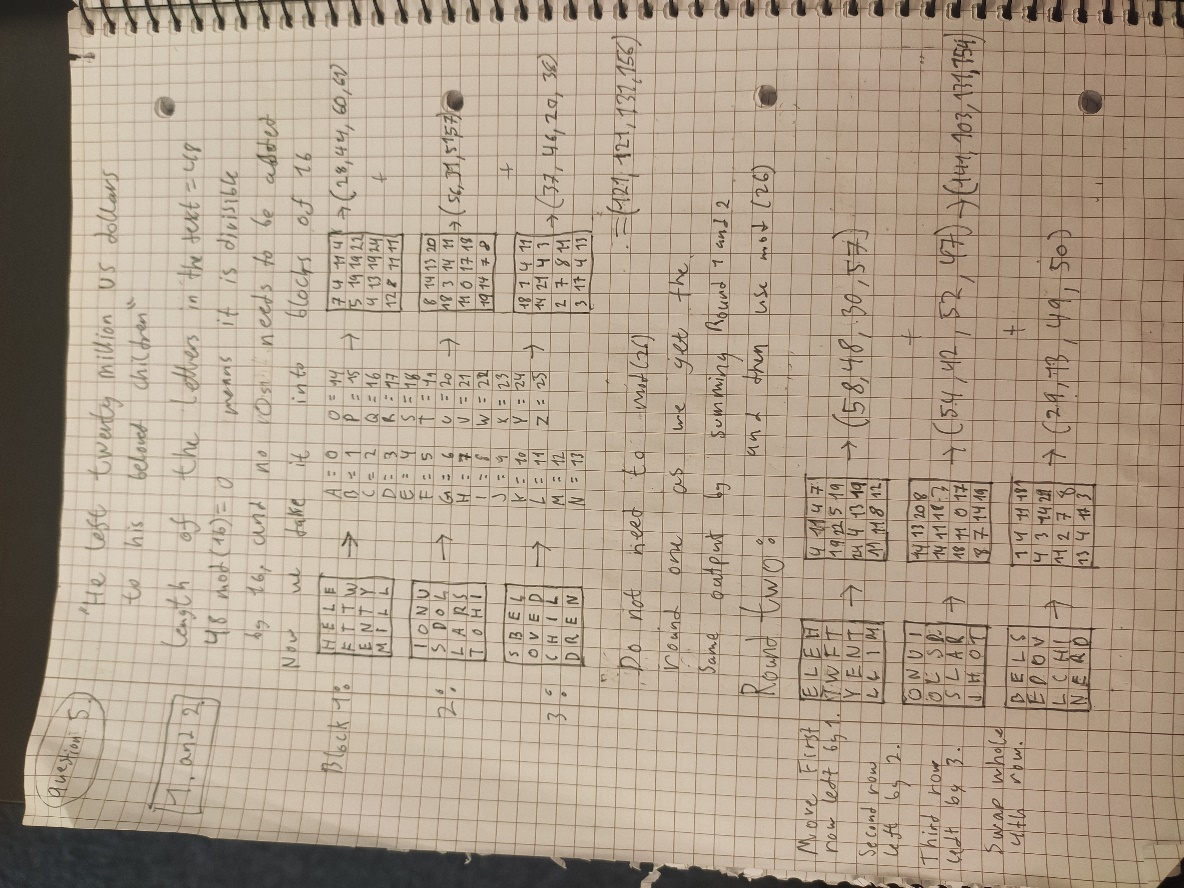 question 5.
1. and 2.
"He left twenty million US dollars
to his beloved children"
Length of the Letters in the text = 48
48 mod (16) = 0 means it is divisible
by 16, and no 'O's needs to be added
Now we take it into blocks of 16
Block 1:
H E L E
F T T W
E N T Y
M I L L
→
A = 0 O = 14
B = 1 P = 15
C = 2 Q = 16
D = 3 R = 17
E = 4 S = 18
F = 5 T = 19
G = 6 U = 20
H = 7 V = 21
I = 8 W = 22
J = 9 X = 23
K = 10 Y = 24
L = 11 Z = 25
M = 12
N = 13
→
7 4 11 4
5 19 19 22
4 13 19 24
12 8 11 11
→ (28, 44, 60, 61)
+
2:
I O N U
S D O L
L A R S
T O H I
→ →
8 14 13 20
18 3 14 11
11 0 17 18
19 14 7 8
→ (56, 31, 51, 57)
+
3:
S B E L
O V E D
C H I L
D R E N
→ →
18 1 4 11
14 21 4 3
2 7 8 11
3 17 4 13
→ (37, 46, 20, 38)
= (121, 121, 131, 156)
Do not need to mod(26)
round one as we get the
same output by summing Round 1 and 2
and then use mod (26)
Round two:
Move First
row left by 1.
Second row
left by 2.
Third row
left by 3.
Swap whole
4th row.
E L E H
T W F T
Y E N T
L L I M
→
4 11 4 7
19 22 5 19
24 4 13 19
11 11 8 12
→ (58, 48, 30, 57)
+
O N U I
O L S D
S L A R
I H O T
→
14 13 20 8
14 11 18 3
18 11 0 17
8 7 14 19
→ (54, 42, 52, 47) → (141, 103, 131, 154)
+
B E L S
E D O V
L C H I
N E R D
→
1 4 11 18
4 3 14 21
11 2 7 8
13 4 17 3
→ (29, 13, 49, 50)